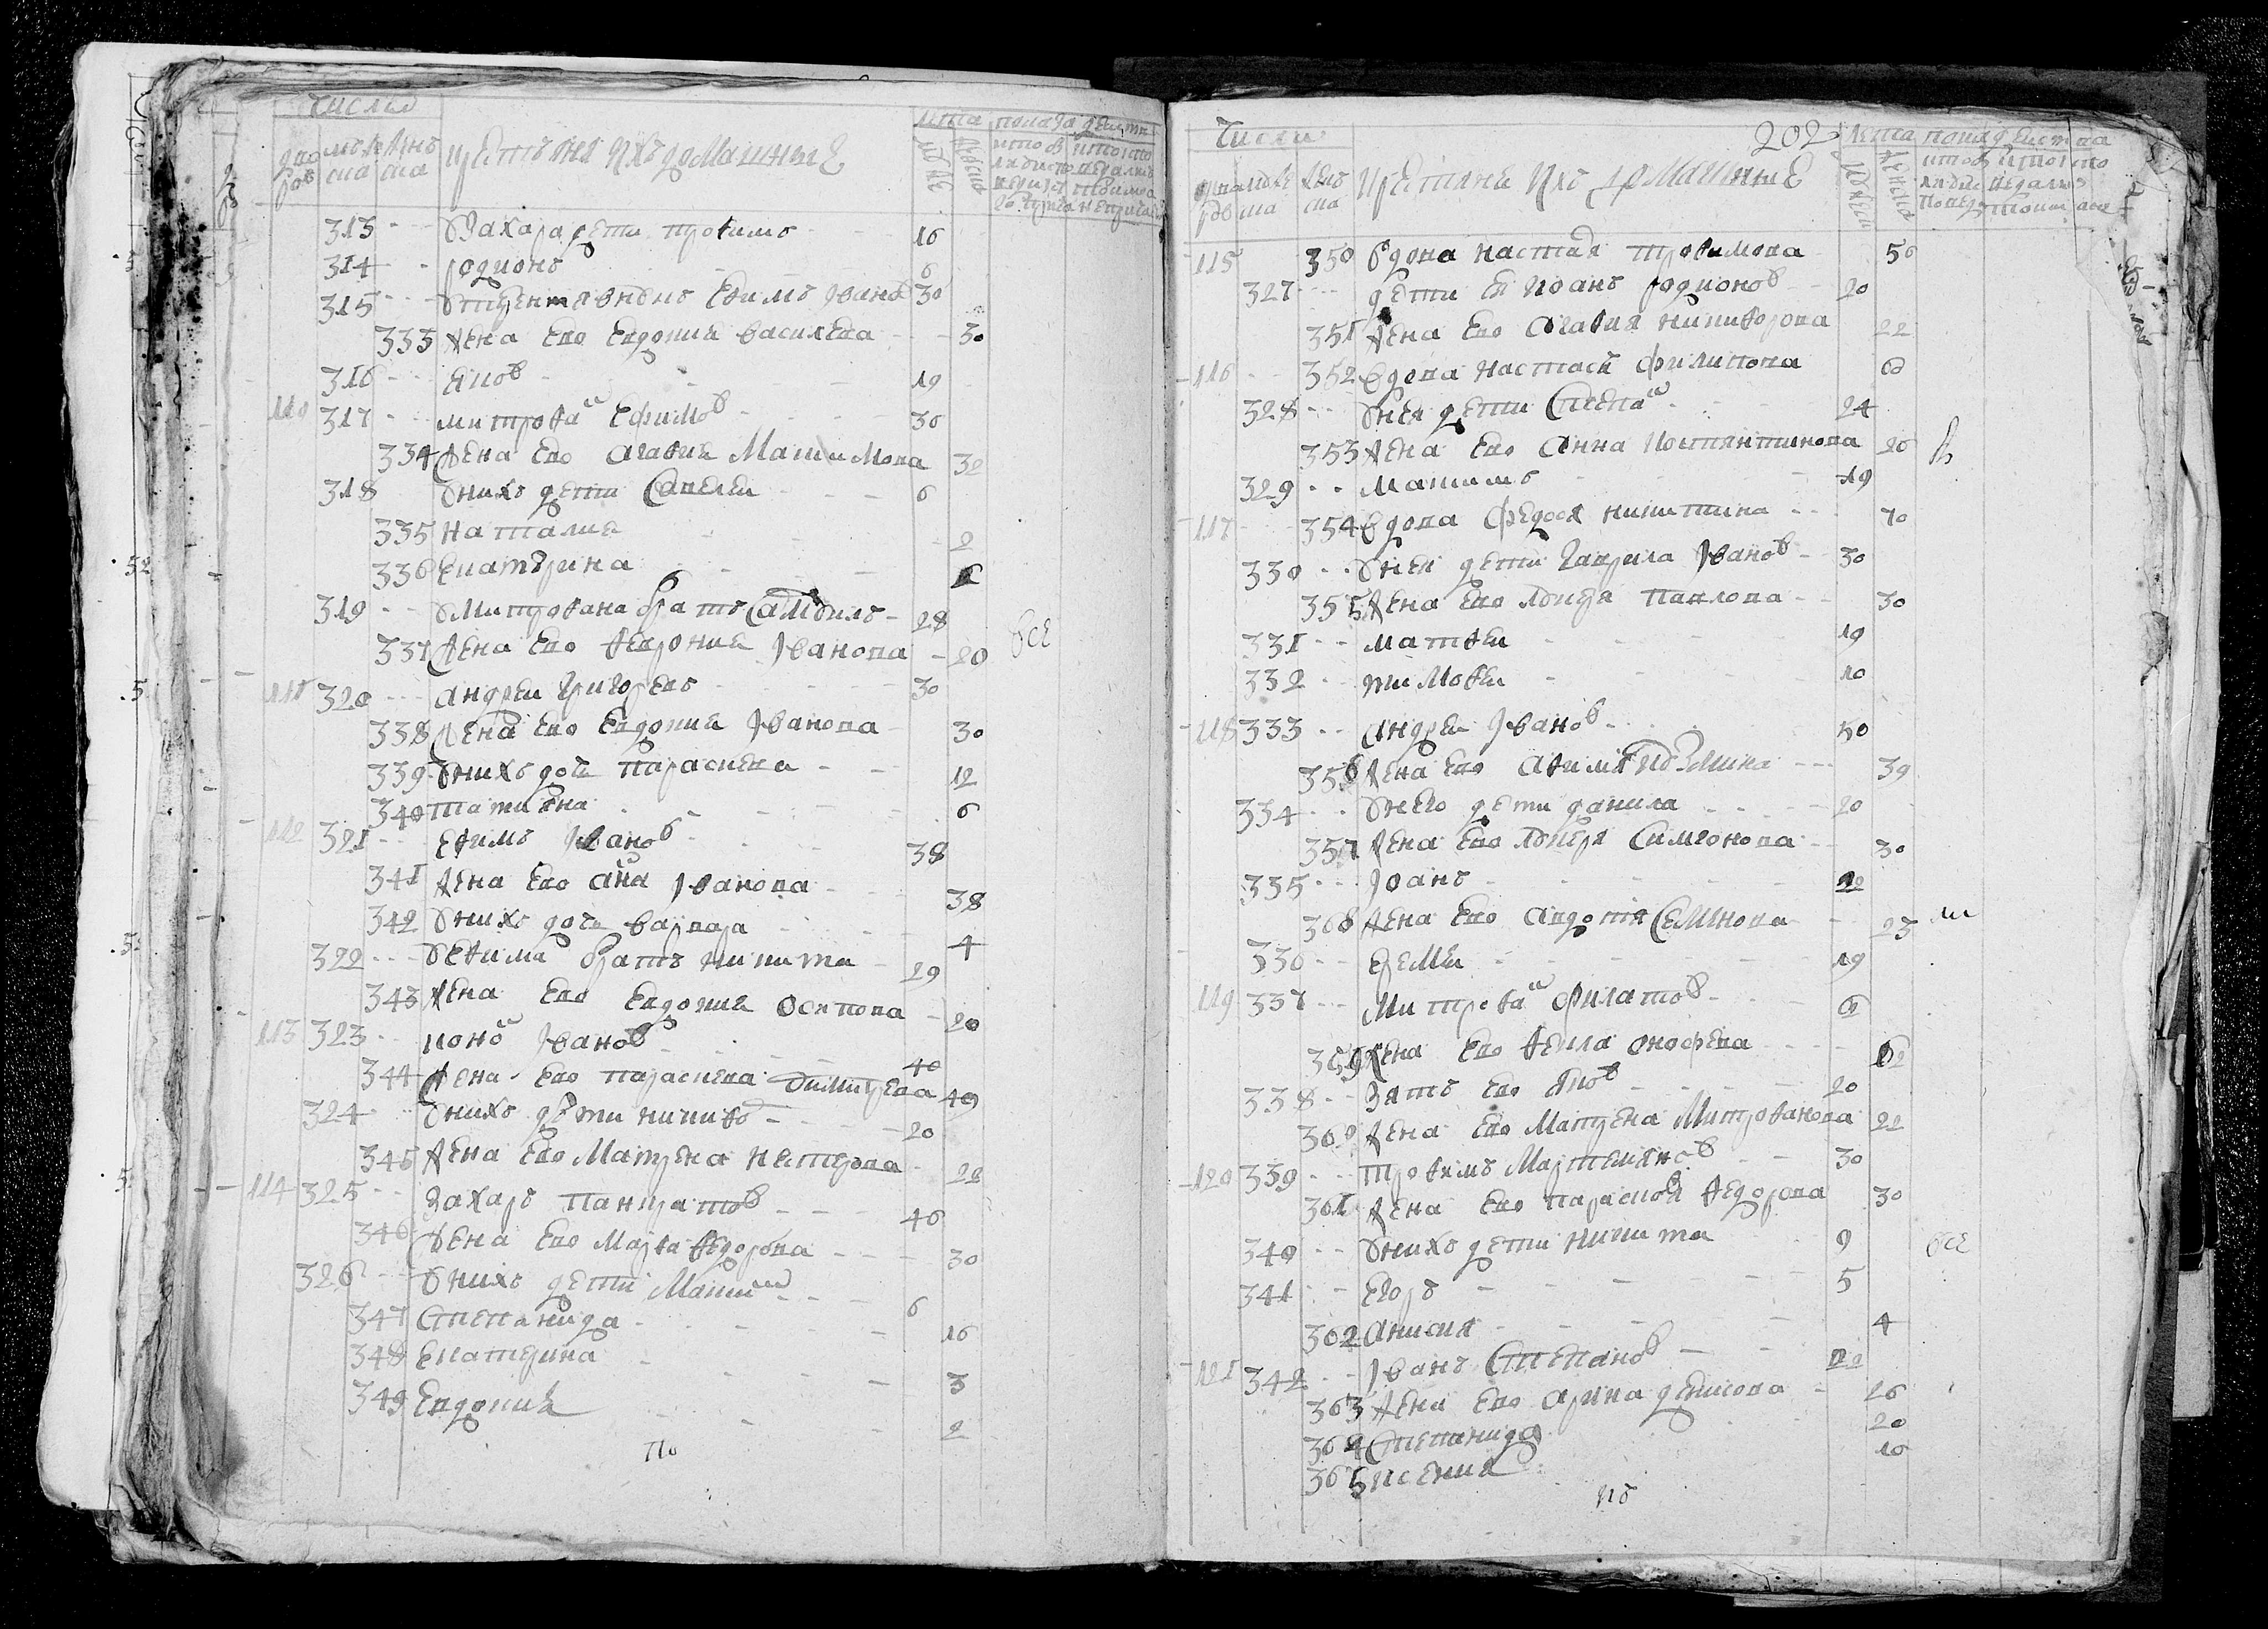 числа
лета
крестьяня ихъ домашные
313 Захара дети трофимъ 16
314 родионъ 6
315 ефимъ Iванов 30
333 жена ево евдокия василева 30
316 яков 19
110 317 митрофаи ефимов 30
334 жена ево агафия Максимова 32
318 у нихъ дети Савелеи 6
335 наталия 2
336 екатерина
319 у митрофана братъ Самоилъ 28
337 жена ево феврония Iванова 20 все
111 320 андреи григоревъ 30
338 жена ево евдокия Iванова 30
339 у нихъ дочь параскева 12
340 татияна 6
112 321 ефимъ Iванов 38
341 жена ево анна Iванова 38
342 у нихъ дочь варвара 4
322 у ефима братъ никита 29
343 жена ево евдокия осипова 20
113 323 конои Iванов 40
344 жена ево параскева димитрева 40
324 у нихъ дети никифо 20
345 жена ево Матрена нестерова 22
114 325 Захаръ панкратов 46
346 жена ево Марфа федорова 30
326 у нихъ дети Макси 6
347 Степанида 16
348 екатерина 3
349 Евдокия 2
по
202
числа
лета
крестьяня ихъ домашные
115 350 вдова настая трофимова 50
327 дети ея иоанъ родионов 20
351 жена ево агафия никифорова 22
116 352 вдова настася филипова 60
328 у нея дети Степаи 24
353 жена ево анна костянтинова 20
329 Макимъ 19
117 354 вдова федося никитина 70
330 у неи дети гаврила Iванов 30
355 жена ево лукеря павлова 30
331 матфеи 19
332 тимофеи 10
118 333 андреи Iванов 50
356 жена ево афимя кузмина 39
334 у него дети данила 20
357 жена ево лукеря Симеонова 30
335 Iоанъ
308 жена ево авдотя Семенова 23
330 еремеи 19
119 337 Митрофаи филатов
359 жена ево фекла онофрева
338 зять ево яков 20
360 жена ево Матрена Митрофанова 22
120 339 трофимъ Мартемянов 30
361 жена ево параскова федорова 30
340 у нихъ дети никита 9 все
341 егоръ 5
362 анисия 4
121 342 Iванъ Степанов
363 жена ево арина денисова 26
364 Степанида 20
365 ксения 10